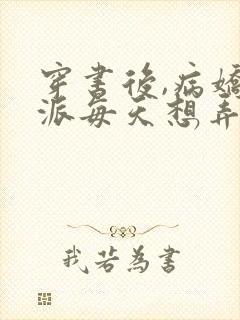 穿書後,病嬌
派每天想弄
我若為書